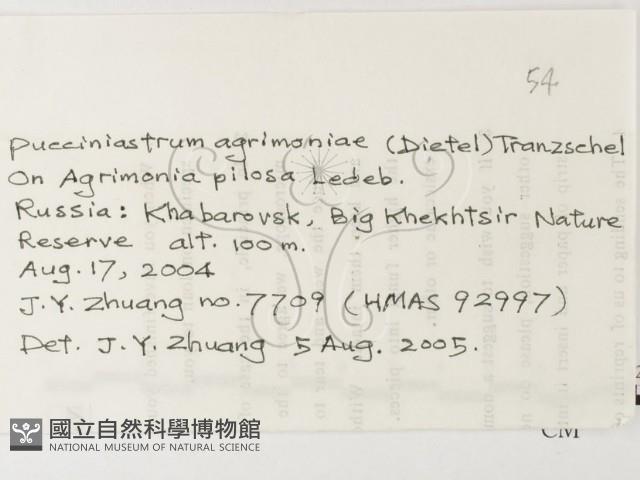 54
Pucciniastrum agrimoniae (Dietel) Tranzschel
On Agrimonia pilosa Ledeb.
Russia: Khabarovsk, Big Khekhtsir Nature
Reserve alt. 100 m.
Aug. 17, 2004
J.Y. Zhuang no. 7709 (HMAS 92997)
Det. J.Y. Zhuang 5 Aug. 2005.
國立自然科學博物館
NATIONAL MUSEUM OF NATURAL SCIENCE
CM